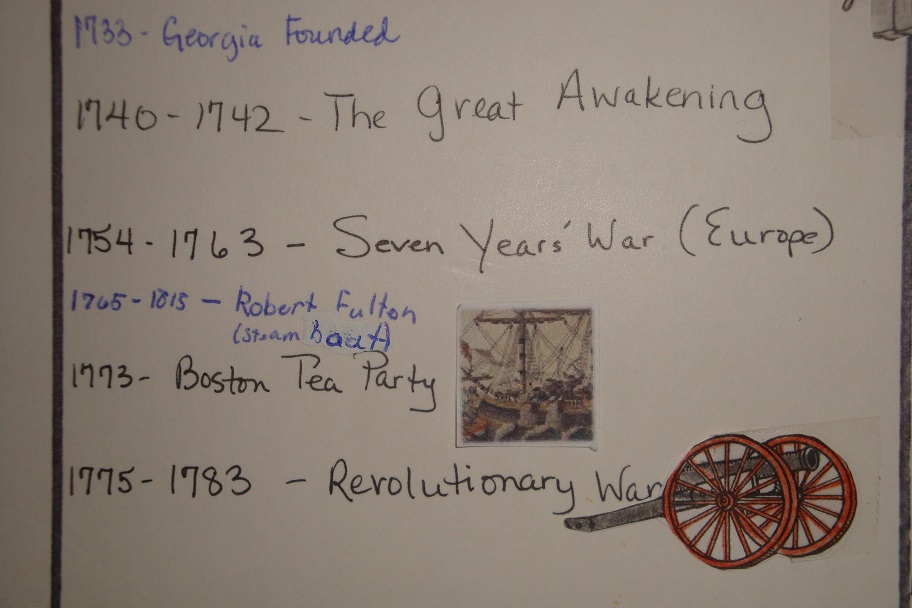 1733- Georgia Founded
1740-1742 - The Great Awakening
1754-1763 - Seven Years' War (Europe)
1765-1815 - Robert Fulton
(Steam Boat)
1773- Boston Tea Party
1775-1783 - Revolutionary War